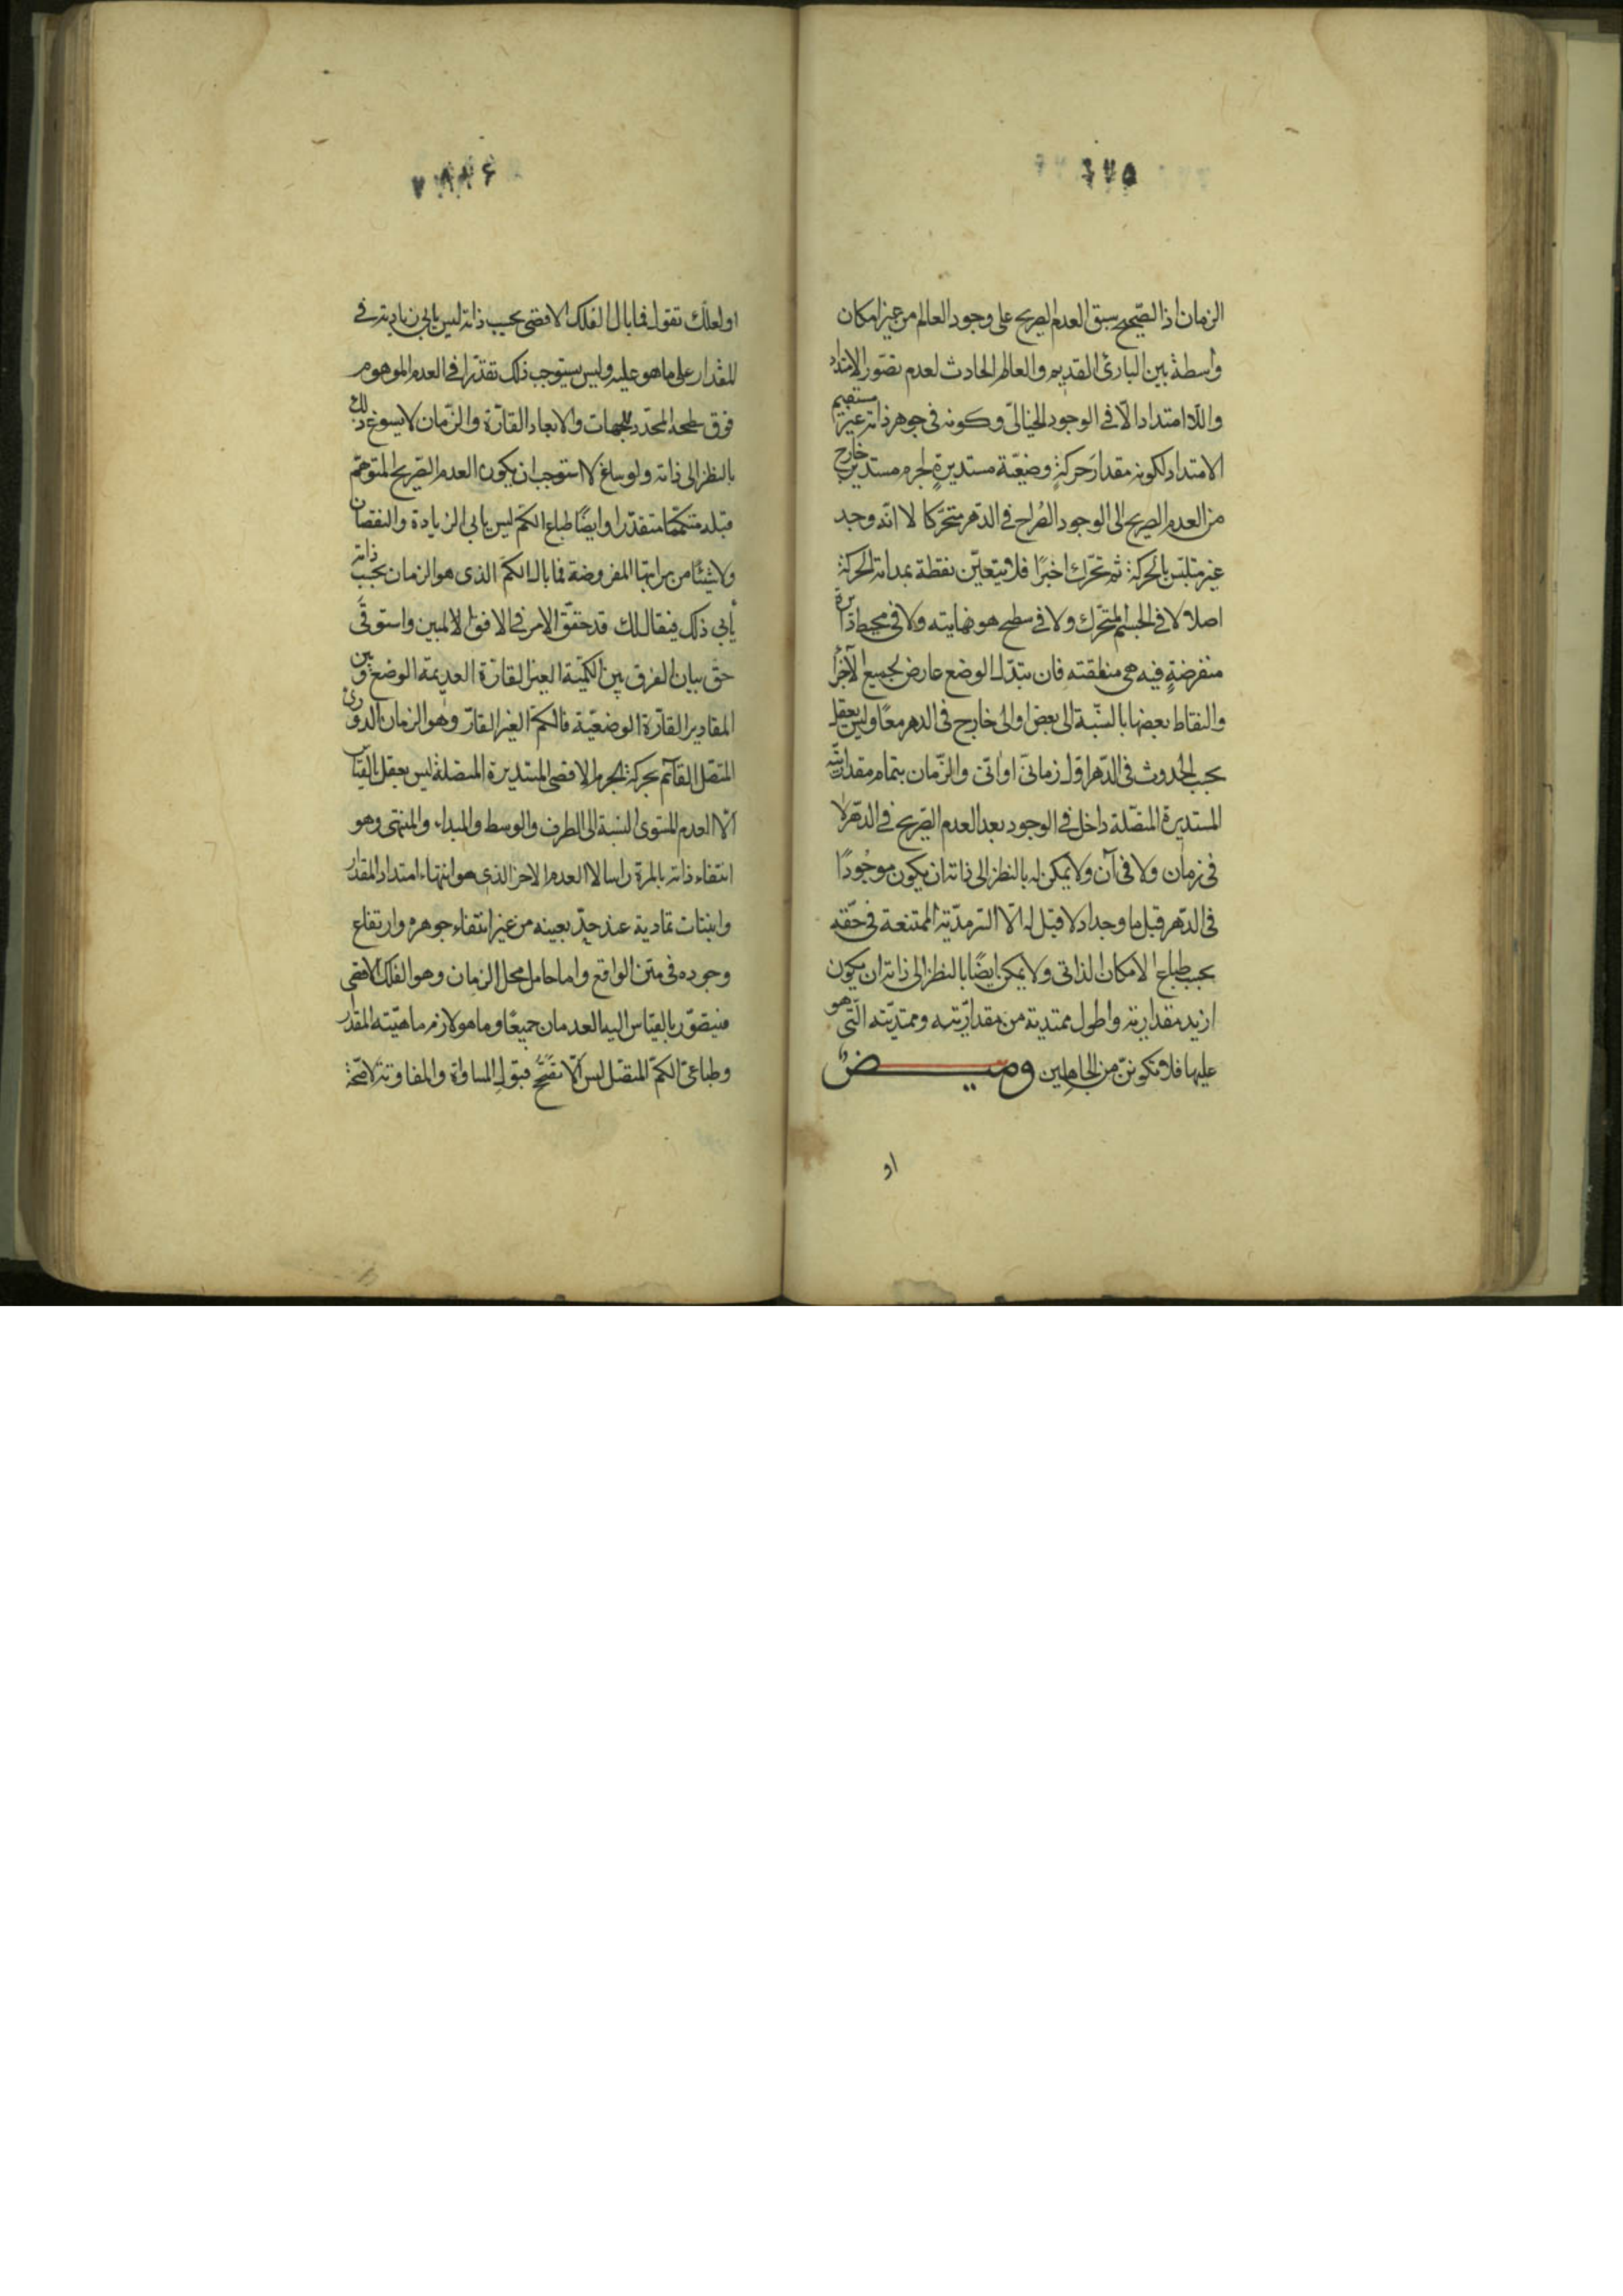 الزمان اذ الصّحيح سبق العدم الصريح على وجود العالم من غير امكان
واسطة بين البارئ القديم و العالم الحادث لعدم تصوّر الامتداد
واللّا امتداد الّا فى الوجود الخيالىّ وكونه فى جوهر ذاته غير مستقيم
الامتداد لكونه مقدار حركةٍ وضعيّة مستديرةٍ لجرم مستدير خارج
من العدم الصريح الى الوجود الصُراح فى الدّهر متحرّكا لا انّه وجد
غير متلبّس بالحركة ثم تحرّك اخيرًا فلا يتعيّن نقطة بمداته الحركة
اصلا لا فى الجسم المتحرّك ولا فى سطح هو نهايته ولا فى محيط دائرة
منفرضةٍ فيه هى منطقته فان تبدّل الوضع عارض لجميع الآجزاء
والنقاط بعضها بالنسّبة الى بعض او الى خارج فى الدهر معًا وليس يعقل
بحسب الحدوث فى الدّهر اوّل زمانىّ او انىّ والزّمان بتمام مقداريّته
المستديرة المتصّلة داخل فى الوجود بعد العدم الصّريح فى الدّهر لا
فى زمان ولا فى آن ولا يمكن له بالنظر الى ذاته ان يكون موجُودًا
فى الدّهر قبل ما وجد اذ لا قبل له الّا السّرمدّية الممتنعة فى حقّه
بحسب طباع الامكان الذاتى ولا يمكن ايضًا بالنظر الى ذاته ان يكون
ازيد مقداريته واطول ممتدية من مقداريّته وممتديّته التّى هو
عليها فلا تكوننّ من الجاهلين وميــض
او
او لعلّك تقول فما بال الفلك الاقصى بحسب ذاته ليس يابى زيادته فى
المقدار على ما هو عليه وليس يستوجب ذلك تقدّرا فى العدم الموهوم
فوق سطحه المحدّد للجهات والابعاد القارّة والزّمان لا يسوغ ذلك
بالنظر الى ذاته ولو ساغ لا استوجب ان يكون العدم الصّريح المتوهّم
قبله متكمّما متقدّرا وايضًا طباع الكمّ ليس يابى الزيادة والنقصان
ولا شيئًا من مراتبها المفروضة فما بال الكمّ الذى هو الزمان بحسب ذاته
يأبى ذلك فيقال لك قد حقّق الامر فى الافق المبين واستوفى
حقّ بيان الفرق بين الكميّة الغير القارّة العديمة الوضع وبين
المقادير القارّة الوضعيّة فالكمّ الغير القارّ وهو الزمان الدورىّ
المتصّل القآئم بحركة الجرم الاقصى المستديرة المتصّلة ليس يعقل بالقياس
الّا العدم المستوى النسبة الى الطرف والوسط والمبداء والمنتهى وهو
انتفاء ذاته بالمرة راسا لا العدم الاخر الذى هو انتهاء امتداد المقدار
وانبتات تمادية عند حدٍّ بعينه من غير انتفاء جوهره وارتفاع
وجوده فى متن الواقع واما حامل محل الزمان وهو الفلك الاقصى
فيتصوّر بالقياس اليه العدمان جميعًا وما هو لازم ماهيّته المقدار
وطباعىّ الكمّ المتصّل ليس الّا تصحّح قبول المساواة والمفاوتة لا صّحة